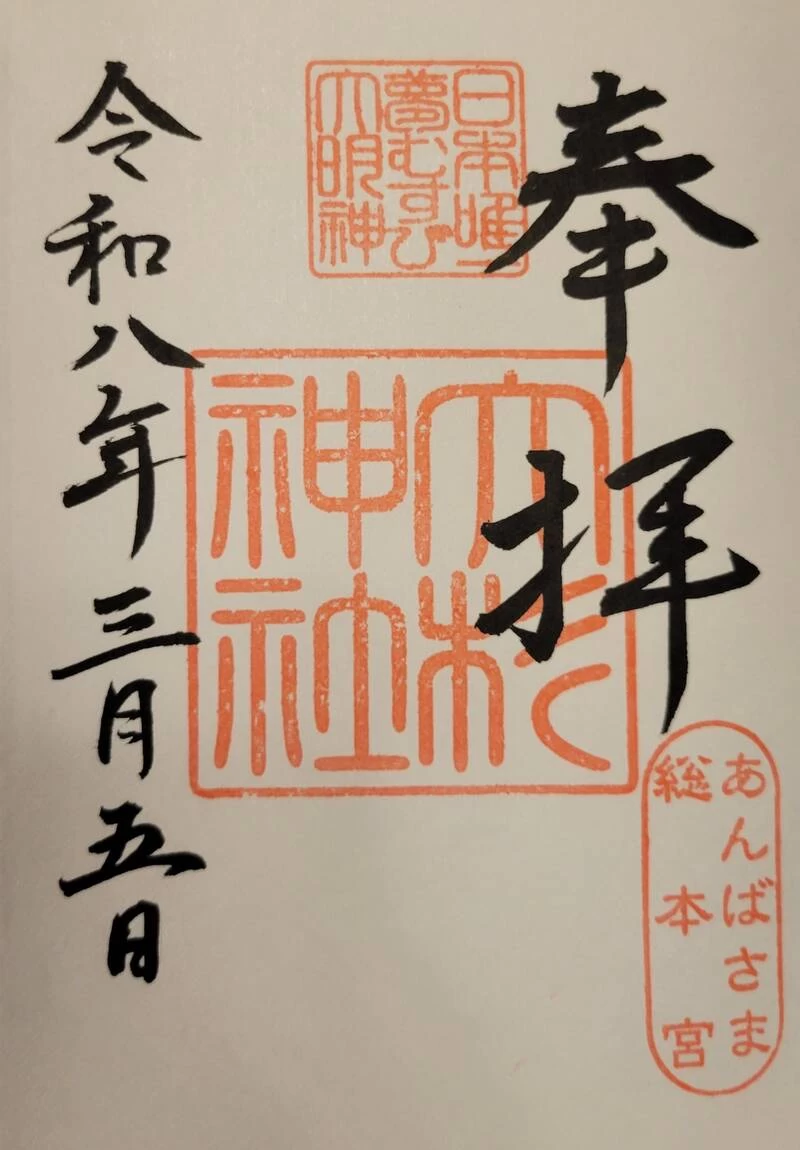 奉拝
日本唯一
夢むすび
大明神
大杉
神社
あんばさま
総本宮
令和八年三月五日